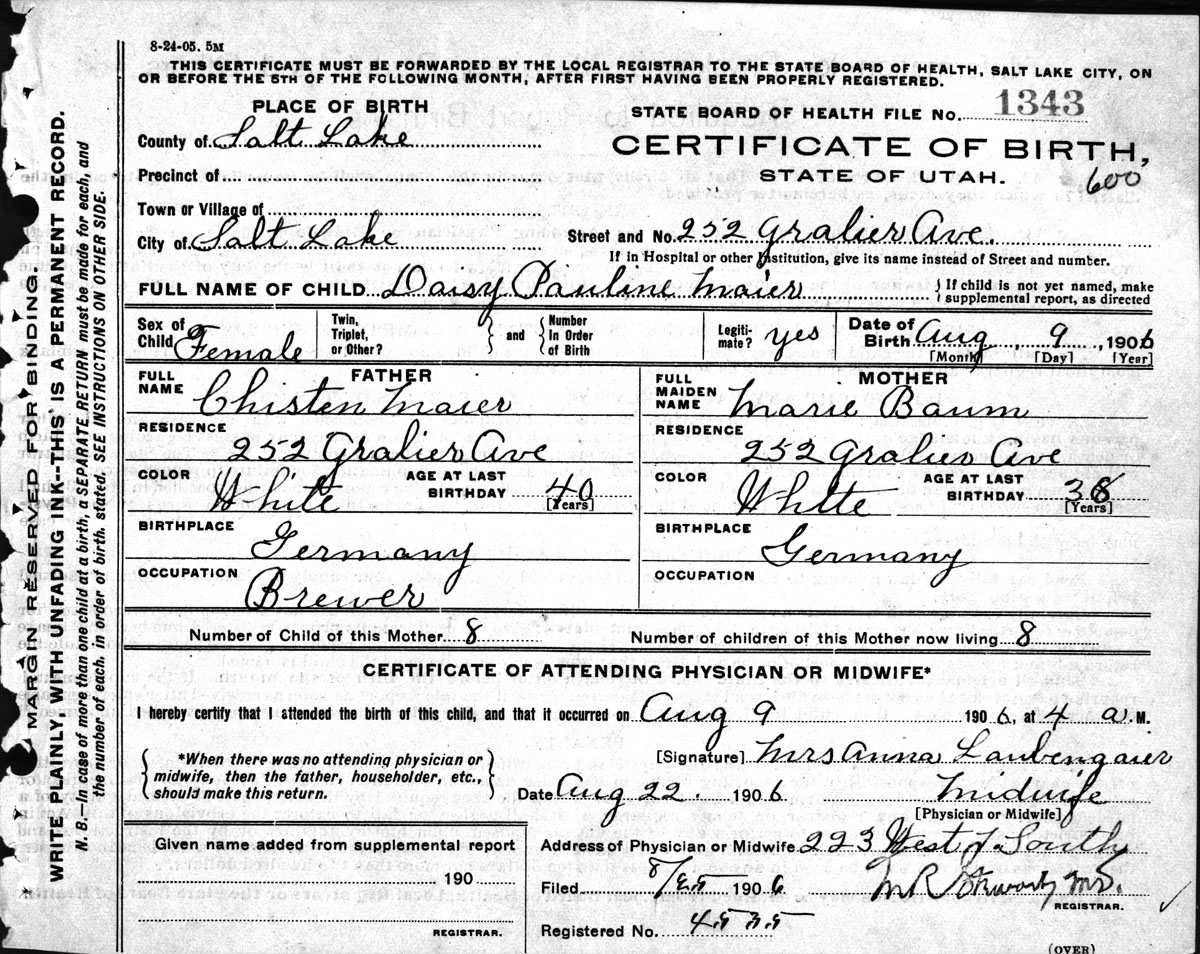 8-24-05. 5M
THIS CERTIFICATE MUST BE FORWARDED BY THE LOCAL REGISTRAR TO THE STATE BOARD OF HEALTH, SALT LAKE CITY, ON
OR BEFORE THE 5TH OF THE FOLLOWING MONTH, AFTER FIRST HAVING BEEN PROPERLY REGISTERED.
PLACE OF BIRTH
STATE BOARD OF HEALTH FILE NO. 1343
County of Salt Lake
CERTIFICATE OF BIRTH,
Precinct of
STATE OF UTAH.
600
Town or Village of
City of Salt Lake
Street and No. 252 Gralier Ave.
If in Hospital or other Institution, give its name instead of Street and number.
FULL NAME OF CHILD Daisy Pauline Maier
If child is not yet named, make
supplemental report, as directed
Sex of Child Female
Twin, Triplet, or Other?
and
Number In Order of Birth
Legiti-mate? yes
Date of Birth Aug 9, 1906
[Month] [Day] [Year]
FATHER
FULL NAME Chisten Maier
MOTHER
FULL MAIDEN NAME Marie Baum
RESIDENCE
252 Gralier Ave
RESIDENCE
252 Gralier Ave
COLOR White
AGE AT LAST BIRTHDAY 40
[Years]
COLOR White
AGE AT LAST BIRTHDAY 38
[Years]
BIRTHPLACE
Germany
BIRTHPLACE
Germany
OCCUPATION
Brewer
OCCUPATION
Number of Child of this Mother 8
Number of children of this Mother now living 8
CERTIFICATE OF ATTENDING PHYSICIAN OR MIDWIFE*
I hereby certify that I attended the birth of this child, and that it occurred on Aug 9 1906, at 4 a.M.
*When there was no attending physician or
midwife, then the father, householder, etc.,
should make this return.
[Signature] Mrs Anna Laubengaier
Date Aug 22. 1906
Midwife
[Physician or Midwife]
Given name added from supplemental report
190
REGISTRAR.
Address of Physician or Midwife 223 West 7 South
Filed 8/25 1906
M.D.
REGISTRAR.
Registered No. 4535
(OVER)
MARGIN RESERVED FOR BINDING.
WRITE PLAINLY, WITH UNFADING INK--THIS IS A PERMANENT RECORD.
N. B.—In case of more than one child at a birth, a SEPARATE RETURN must be made for each and
the number of each, in order of birth, stated. SEE INSTRUCTIONS ON OTHER SIDE.